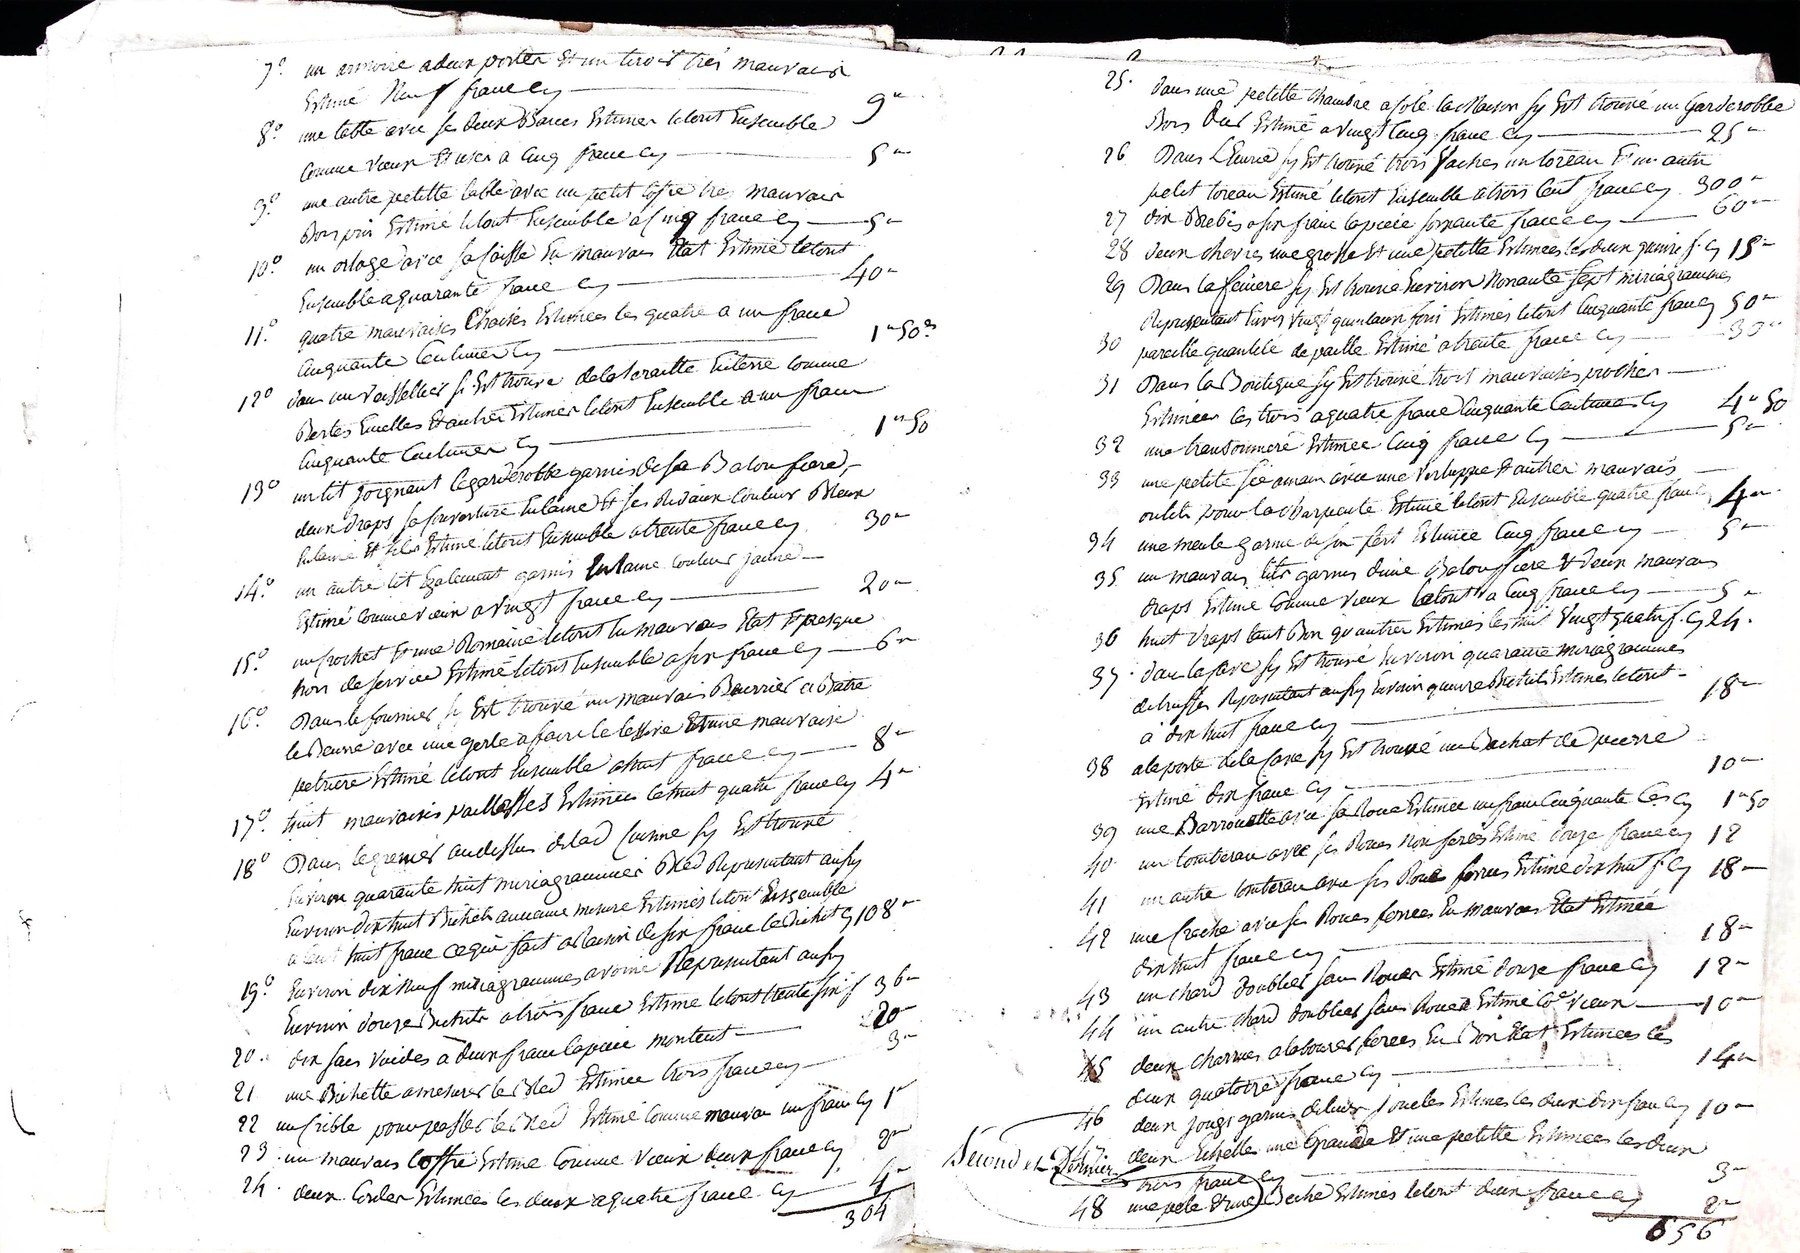 7.° un armoire a deux portes et un tiroir très mauvais
Estimé Neuf franc Cy 9"
8.° une table avec se deux Bancs Estimer letout Ensemble
comme vieux et user a Cinq franc Cy 5"
9.° une autre petitte table avec un petit Cofre tres mauvais
Bois pin Estimé letout Ensemble a Cinq franc Cy 5"
10.° un orloge avec sa Caisse En mauvais Etat Estimé letout
Ensemble a quarante franc Cy 40"
11.° quatre mauvaises Chaises Estimées les quatre a un franc
Cinquante Centimes Cy 1"50
12.° dans un vaissellier sy Est trouvé de la teraille Enterre comme
Bertes Ecuelles et autres Estimés letout Ensemble a un franc
Cinquante Centimes Cy 1"50
13.° un lit joignant legarderobbe garnis de sa Baloufiere,
deux draps sa Couverture Enlaine et ses Rideaux Couleur Bleux
Enlaine et fil Estimé letout Ensemble a trente franc Cy 30"
14.° un autre lit Egalement garnis Enlaine Couleur jaune
Estimé Comme vieux a vingt franc Cy 20"
15.° un crochet et une Romaine letout En mauvais Etat et presque
hors de service Estimé letout Ensemble a six franc Cy 6"
16.° Dans le fournier sy Est trouvé un mauvais Beurrier a Batre
le Beurre avec une gerle a faire le lessive et une mauvaise
petriere Estimé letout Ensemble a huit franc Cy 8"
17.° huit mauvaises paillasses Estimées les huit quatre franc Cy 4"
18.° Dans legrenier audessus de lad Cuisine sy Est trouvé
Environ quarante huit miriagrammes Bled Representant aussy
Environ dix huit Bichets ancienne mesure Estimés letout Ensemble
a Cent huit franc cequi fait a Raison de six franc le Bichet Cy 108"
19.° Environ dix Neuf miriagrammes avoine Representant aussy
Environ douze Bichets a trois franc Estimé letout trente six f 36"
20. dix sacs vuides à deux franc lapiece montent 20"
21 une Bichette a mesurer le Bled Estimée trois franc Cy 3"
22 un Crible pour passer le Bled Estimé Comme mauvais un franc Cy 1"
23. un mauvais Coffre Estimé Comme vieux deux franc Cy 2"
24. deux Cordes Estimées les deux a quatre franc Cy 4"
304
25. dans une petitte chambre a coté la Maison sy Est trouvé un Garderobbe
Bois Dur Estimé a vingt Cinq franc Cy 25"
26 Dans L'Ecurie sy Est trouvé trois Vaches un toreau Et un autre
petit toreau Estimé letout Ensemble a trois Cent franc Cy 300"
27 dix Brebis a six franc lapiece soixante franc Cy 60"
28 deux chevres une grosse et une petitte Estimées les deux quinze f. Cy 15"
29 Dans la feniere sy Est trouvé Environ Nonante sept miriagrammes
Representant Environ vingt quintaux foin Estimés letout Cinquante franc Cy 50"
30 pareille quantité de paille Estimé a trente franc Cy 30"
31 Dans la Boutique sy Est trouvé trois mauvaises pioches
Estimées les trois a quatre franc Cinquante Centimes Cy 4"50
32 une transonniere Estimée Cinq franc Cy 5"
33 une petite scie a main avec une Verluppe et autres mauvais
outils pour la Charpente Estimé letout Ensemble quatre franc, 4"
34 une meule garnie de son fert Estimée Cinq franc Cy 5"
35 un mauvais lits garnis d'une Balouffiere & deux mauvais
draps Estimé Comme vieux letout a Cinq franc Cy 5"
36 huit draps tant Bon qu'autres Estimés les huit vingt quatre f. Cy 24.
37. dans la Cave sy Est trouvé Environ quarante miriagrammes
de truffes Representant aussy Environ quinze Bichets Estimés letout
à dix huit franc Cy 18"
38 a la porte de la Cave sy Est trouvé un Bachat de pierre
Estimé dix franc Cy 10"
39 une Barrouette avec sa Roue Estimée un franc Cinquante Ces Cy 1"50
40 un tombereau avec ses Roues Non ferés Estimé douze franc Cy 12
41 un autre tombereau avec ses Roues ferrees Estimé dix huit f. Cy 18"
42 une Creche avec ses Roues ferrees En mauvais Etat Estimée
dix huit franc Cy 18"
43 un chard doublier sans Roues Estimé douze franc Cy 12"
44 un autre chard doublier sans Roues Estimé Coe vieux 10"
45 deux charrues a labourer ferees En Bon Etat Estimées les
deux quatorze franc Cy 14"
46 deux jougs garnis de leurs Joucles Estimés les deux dix franc Cy 10"
47 deux Echelles une Grande et une petitte Estimées les deux
trois franc Cy 3"
Second et Dernier
48 une pele et une Beche Estimés letout deux franc Cy 2"
656